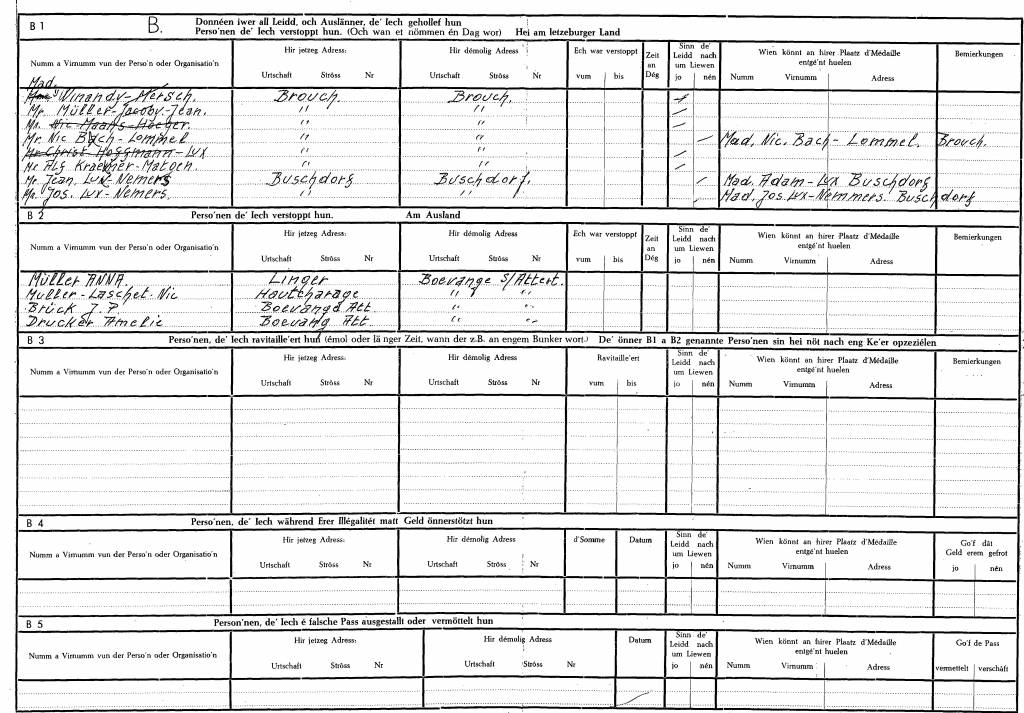 B 1 B. Donnéen iwer all Leidd, och Auslänner, de' Iech gehollef hun
Perso'nen de' Iech verstoppt hun. (Och wan et nömmen én Dag wor) Hei am letzeburger Land
Numm a Virnumm vun der Perso'n oder Organisatio'n
Hir jetzeg Adress:
Urtschaft Ströss Nr
Hir démolig Adress
Urtschaft Ströss Nr
Ech war verstoppt
vum bis
Zeit an Dég
Sinn de' Leidd nach um Liewen
jo nén
Wien könnt an hirer Plaatz d'Médaille entgé'nt huelen
Numm Virnumm Adress
Bemierkungen
Mad.
Winandy-Mersch. Brouch. Brouch.
Mr. Müller-Jacoby-Jean. " "
Mr. Nic-Maans-Hoeger. " "
Mr. Nic Bach-Lommel " " Mad. Nic. Bach- Lommel. Brouch.
Mr Christ Hoffmann-Lux " "
Mr Alf Kraemer-Matgen. " "
Mr. Jean. Lux-Nemers Buschdorf Buschdorf. Mad. Adam-Lux Buschdorf
Mr. Jos. Lux-Nemers. " " Mad. Jos. Lux-Nemmers. Buschdorf
B 2 Perso'nen de' Iech verstoppt hun. Am Ausland
Numm a Virnumm vun der Perso'n oder Organisatio'n
Hir jetzeg Adress:
Urtschaft Ströss Nr
Hir démolig Adress
Urtschaft Ströss Nr
Ech war verstoppt
vum bis
Zeit an Dég
Sinn de' Leidd nach um Liewen
jo nén
Wien könnt an hirer Plaatz d'Médaille entgé'nt huelen
Numm Virnumm Adress
Bemierkungen
Müller ANNA. Linger Boevange S/Attert.
Müller-Laschet-Nic Hautcharage " "
Brück J. P Boevange Att. " "
Drucker Amelie Boevang Att. " "
B 3 Perso'nen, de' Iech ravitaille'ert hun (émol oder lä nger Zeit, wann der z.B. an engem Bunker wort.) De' önner B1 a B2 genannte Perso'nen sin hei nöt nach eng Ke'er opzeziélen
Numm a Virnumm vun der Perso'n oder Organisatio'n
Hir jetzeg Adress:
Urtschaft Ströss Nr
Hir démolig Adress:
Urtschaft Ströss Nr
Ravitaille'ert
vum bis
Sinn de' Leidd nach um Liewen
jo nén
Wien könnt an hirer Plaatz d'Médaille entgé'nt huelen
Numm Virnumm Adress
Bemierkungen
B 4 Perso'nen, de' Iech während Erer Illégalitét matt Geld önnerstötzt hun
Numm a Virnumm vun der Perso'n oder Organisatio'n
Hir jetzeg Adress:
Urtschaft Ströss Nr
Hir démolig Adress:
Urtschaft Ströss Nr
d'Somme
Datum
Sinn de' Leidd nach um Liewen
jo nén
Wien könnt an hirer Plaatz d'Médaille entgé'nt huelen
Numm Virnumm Adress
Go'f dät Geld erem gefrot
jo nén
B 5 Person'nen, de' Iech é falsche Pass ausgestallt oder vermöttelt hun
Numm a Virnumm vun der Perso'n oder Organisatio'n
Hir jetzeg Adress:
Urtschaft Ströss Nr
Hir démolig Adress:
Urtschaft Ströss Nr
Datum
Sinn de' Leidd nach um Liewen
jo nén
Wien könnt an hirer Plaatz d'Médaille entgé'nt huelen
Numm Virnumm Adress
Go'f de Pass
vermettelt verschäft